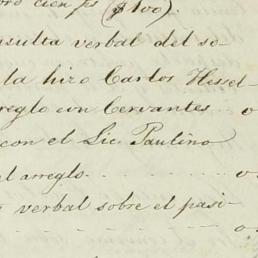 oro cien ps ($100).
nsulta verbal del se-
la hizo Carlos Hessel-
reglo con Cervantes.. o
con el Lic. Paulino
l arreglo..... o
verbal sobre el pasi-